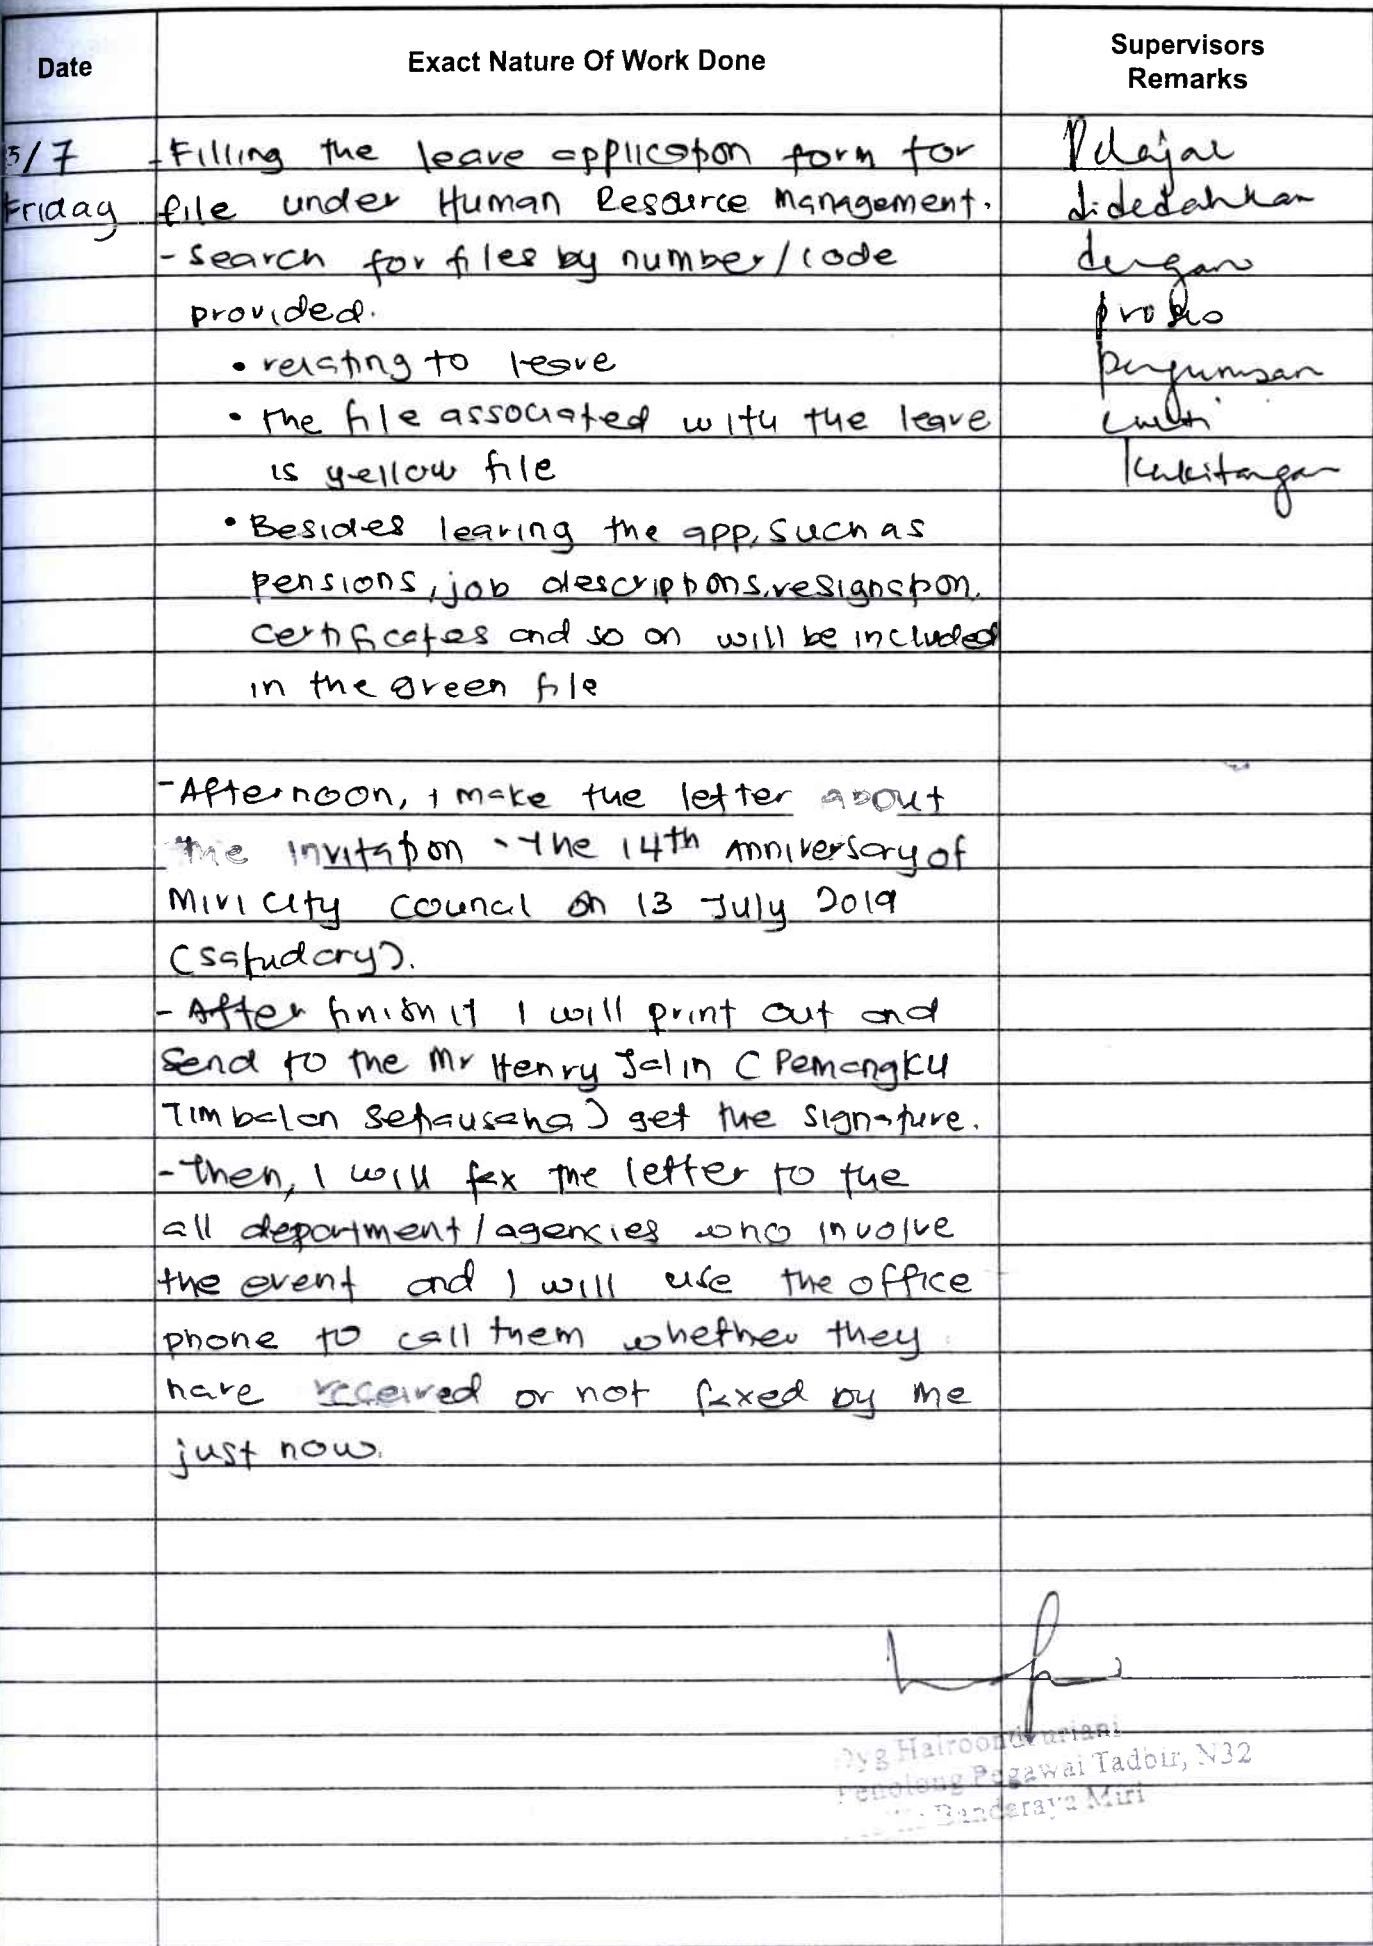 Date
Exact Nature Of Work Done
Supervisors
Remarks
5/7
Friday
- Filling the leave application form for
file under Human Resource Management.
- Search for files by number/code
provided.
• relating to leave
• the file associated with the leave
is yellow file
• Besides leaving the app, such as
pensions, job descriptions, resignation,
certificates and so on will be included
in the green file
- Afternoon, I make the letter about
the invitation - the 14th Anniversary of
Miri City Council on 13 July 2019
(satudary).
- After finish it I will print out and
send to the Mr Henry Jalin ( Pemangku
Timbalan Setiausaha) get the signature.
- Then, I will fax the letter to the
all department/agencies who involve
the event and I will use the office
phone to call them whether they
have received or not faxed by me
just now.
Pelajar
didedahkan
dengan
pengurusan
cuti
kakitangan
Dyg
Penolong Pegawai Tadbir, N32
Bandaraya Miri